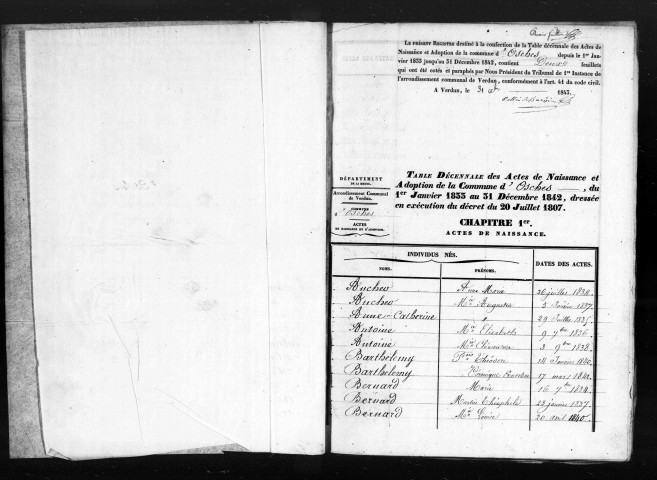 LE PRÉSENT REGISTRE destiné à la confection de la Table décennale des Actes de
Naissance et Adoption de la commune d'Osches depuis le 1er Janvier
1833 jusqu'au 31 Décembre 1842, contient feuillets
qui ont été cotés et paraphés par Nous Président du Tribunal de 1re Instance de
l'arrondissement communal de Verdun, conformément à l'art. 41 du code civil.
A Verdun, le 31 1843.
DÉPARTEMENT
DE LA MEUSE.
Arrondissement Communal
de Verdun.
COMMUNE
d'Osches
ACTES
DE NAISSANCE ET D'ADOPTION.
TABLE DÉCENNALE des Actes de Naissance et
Adoption de la Commune d'Osches, du
1er Janvier 1833 au 31 Décembre 1842, dressée
en exécution du décret du 20 Juillet 1807.
CHAPITRE 1er.
ACTES DE NAISSANCE.
INDIVIDUS NÉS. DATES DES ACTES.
NOMS. PRÉNOMS.
Anne Marie 26 juillet 1834.
Mie Augustin 5 Février 1837.
Anne-Catherine 29 Juillet 1835.
Antoine Mie Elisabeth 9 7bre 1836.
Antoine Mie 3 9bre 1838.
Barthelemy Théodore 14 Janvier 1840.
Barthelemy 17 mars 1842.
Bernard Marie 16 7bre 1834.
Bernard Martin Théophile 23 janvier 1837.
Bernard Mie 20 avril 1840.